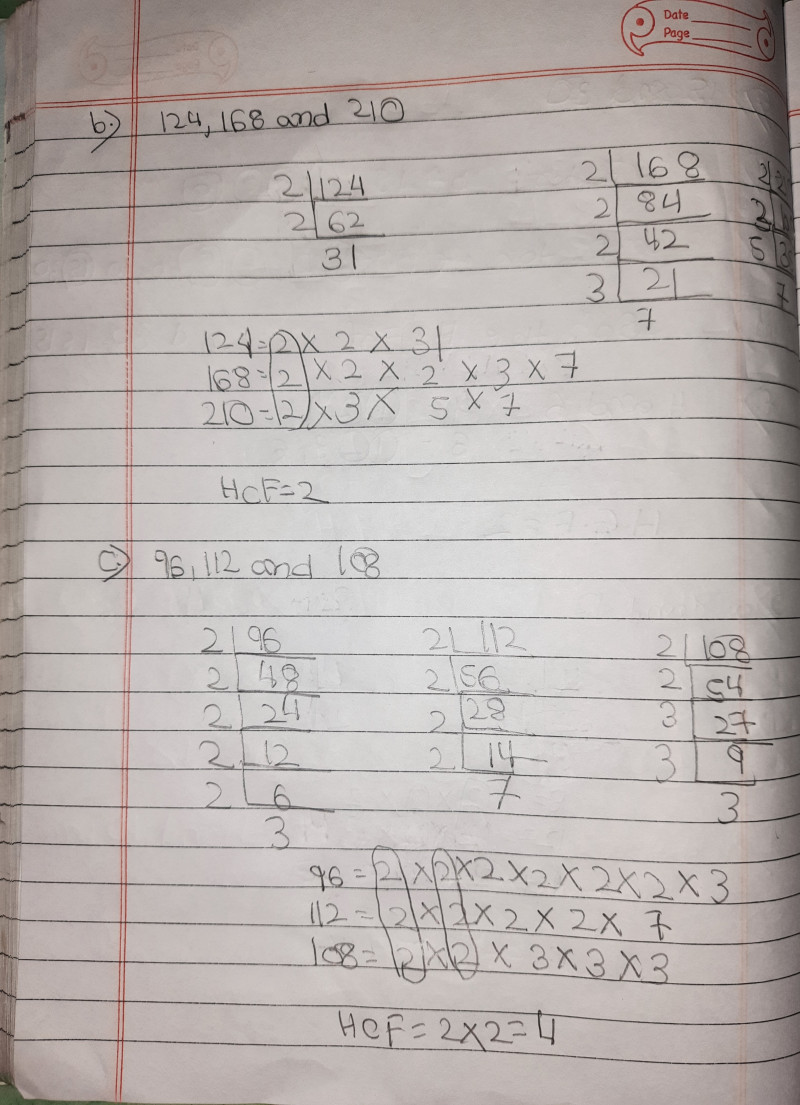 Date
Page
b.) 124, 168 and 210
2 124 2 168
2 62 2 84
31 2 42
3 21
7
124 = 2 × 2 × 31
168 = 2 × 2 × 2 × 3 × 7
210 = 2 × 3 × 5 × 7
HCF = 2
c.) 96, 112 and 108
2 96 2 112 2 108
2 48 2 56 2 54
2 24 2 28 3 27
2 12 2 14 3 9
2 6 7 3
3
96 = 2 × 2 × 2 × 2 × 2 × 2 × 3
112 = 2 × 2 × 2 × 2 × 7
108 = 2 × 2 × 3 × 3 × 3
HCF = 2 × 2 = 4